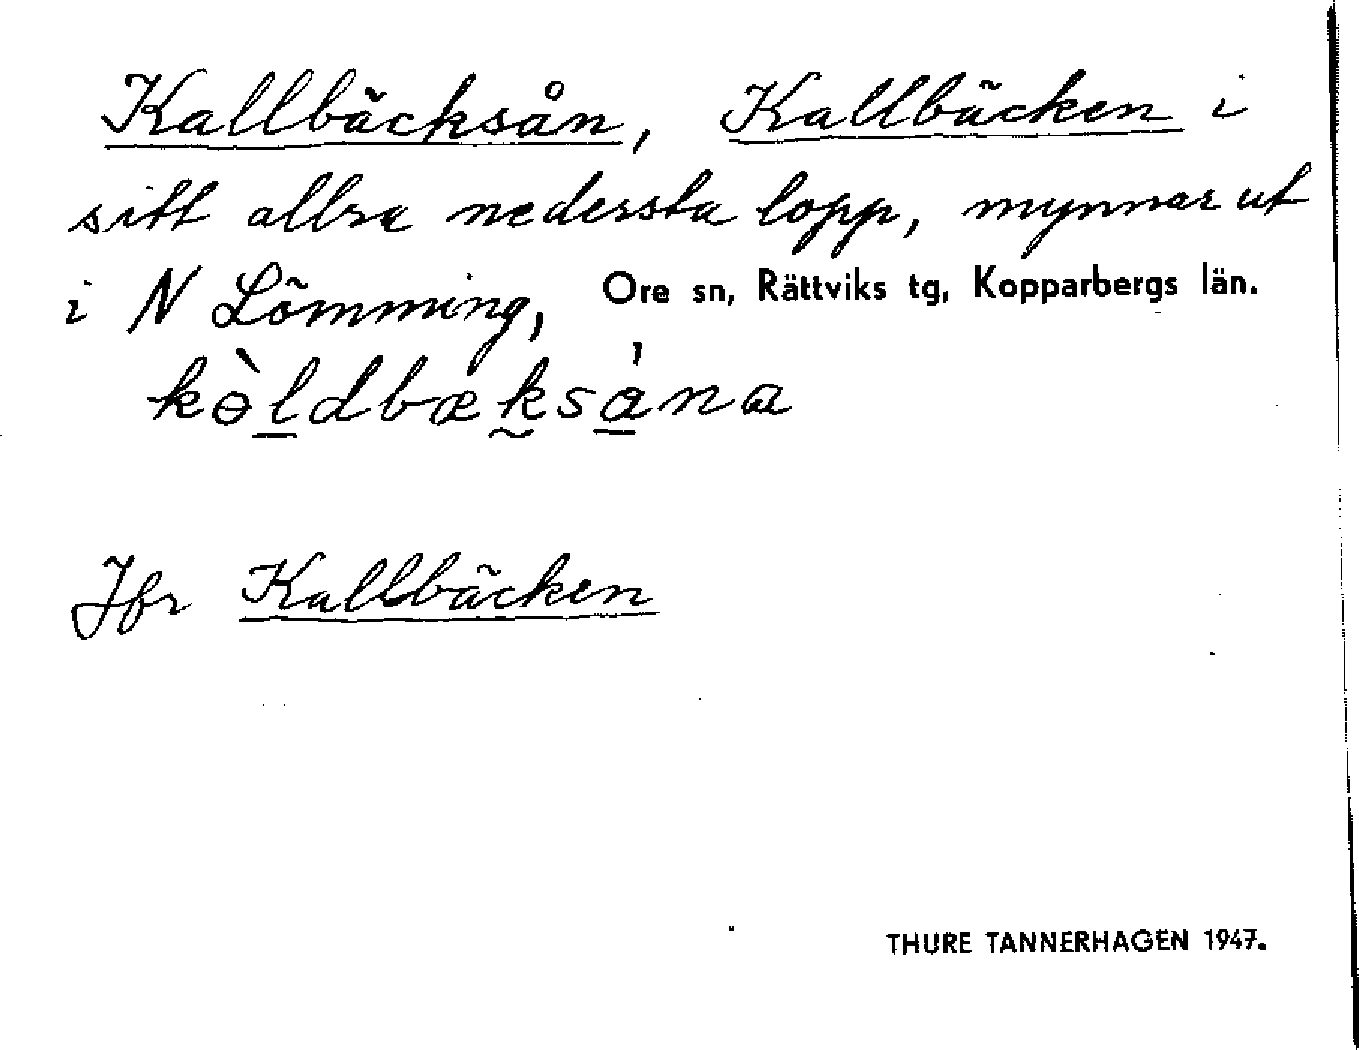 Kallbäcksån, Kallbäcken i
sitt allra nedersta lopp, mynnar ut
i N Lömming, Ore sn, Rättviks tg, Kopparbergs län.
kɵ̀ldbæksȧna
Jfr Kallbäcken
THURE TANNERHAGEN 1947.